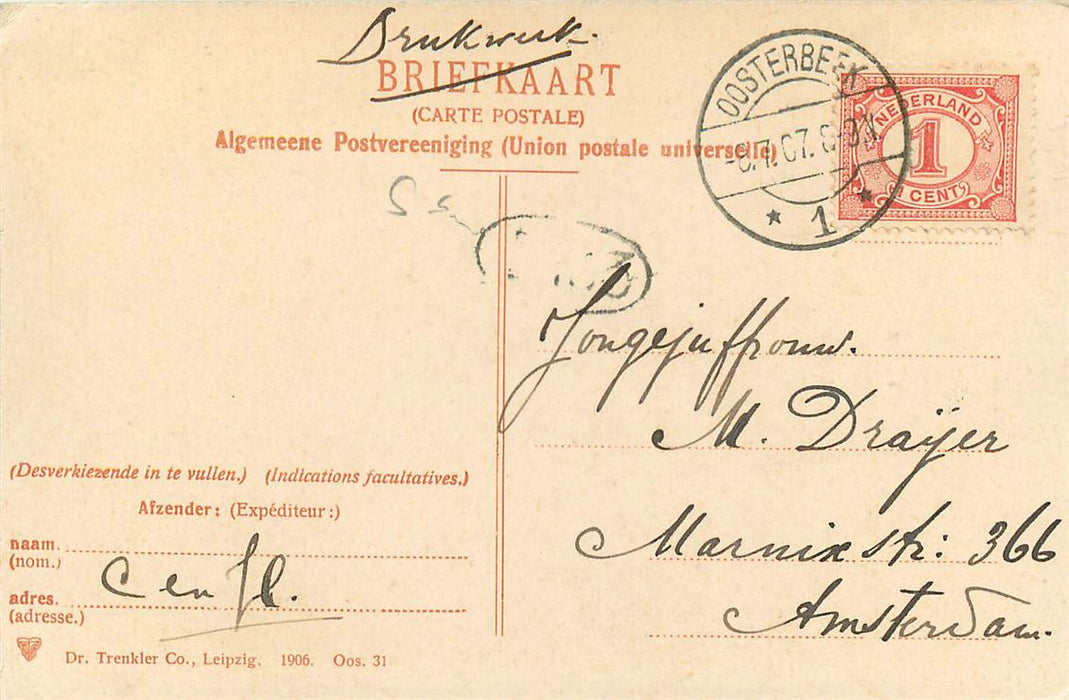 Drukwerk.
BRIEFKAART
(CARTE POSTALE)
Algemeene Postvereeniging (Union postale universelle)
OOSTERBEEK
7.07.8
1
NEDERLAND
1
1 CENT
Jongejuffrouw.
M. Draijer
Marnixstr: 366
Amsterdam.
(Desverkiezende in te vullen.) (Indications facultatives.)
Afzender: (Expéditeur:)
naam.
(nom.)
C en
adres.
(adresse.)
Dr. Trenkler Co., Leipzig. 1906. Oos. 31